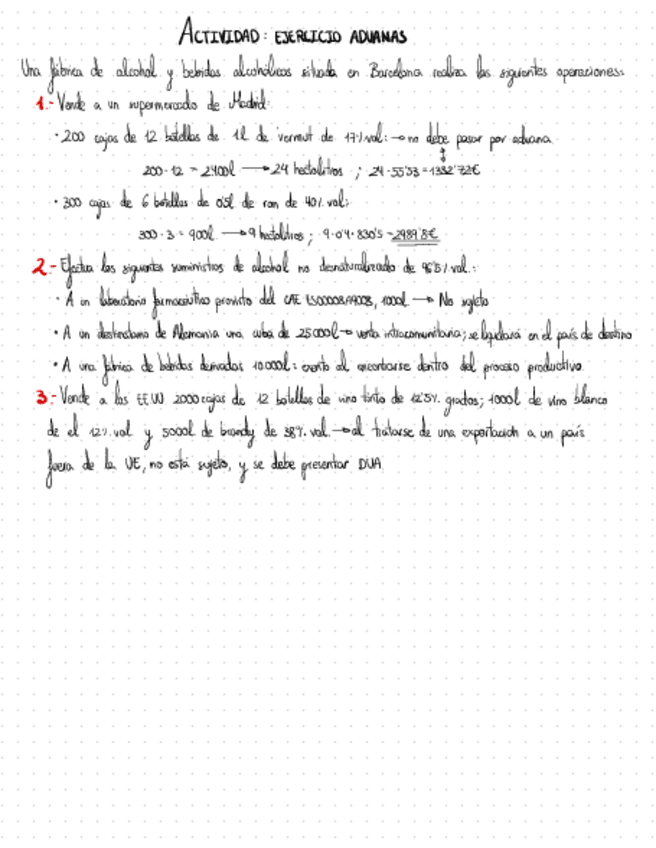 ACTIVIDAD: EJERCICIO ADUANAS
Una fábrica de alcohol y bebidas alcohólicas situada en Barcelona realiza las siguientes operaciones:
1.- Vende a un supermercado de Madrid:
· 200 cajas de 12 botellas de 1l de vermut de 17% vol: → no debe pasar por aduana
200·12 = 2400l → 24 hectolitros ; 24·55'53 = 1332'72€
· 300 cajas de 6 botellas de 0'5l de ron de 40% vol:
300·3 = 900l → 9 hectolitros ; 9·0'4·830'5 = 2989'8€
2.- Efectua los siguientes suministros de alcohol no desnaturalizado de 96'5% vol.:
· A un laboratorio farmaceútico provisto del CAE ES00008A9008, 1000l → No sujeto
· A un destinatario de Alemania una cuba de 25000l → venta intracomunitaria; se liquidará en el país de destino
· A una fábrica de bebidas derivadas 10.000l: exento al encontrarse dentro del proceso productivo.
3.- Vende a los EEUU 2000 cajas de 12 botellas de vino tinto de 12'5% grados; 1000l de vino blanco
de el 12% vol y 5000l de brandy de 38% vol. → al tratarse de una exportación a un país
fuera de la UE, no está sujeto, y se debe presentar DUA